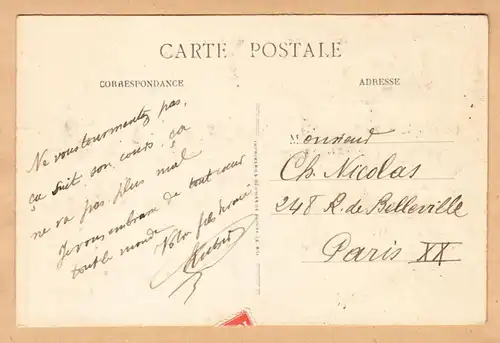 CARTE POSTALE
CORRESPONDANCE
ADRESSE
Ne vous tourmentez pas,
ça suit son cours, ça
ne va pas plus mal
Je vous embrasse de tout coeur
tout le monde
Votre fils
Monsieur
Ch. Nicolas
248 R. de Belleville
Paris XX